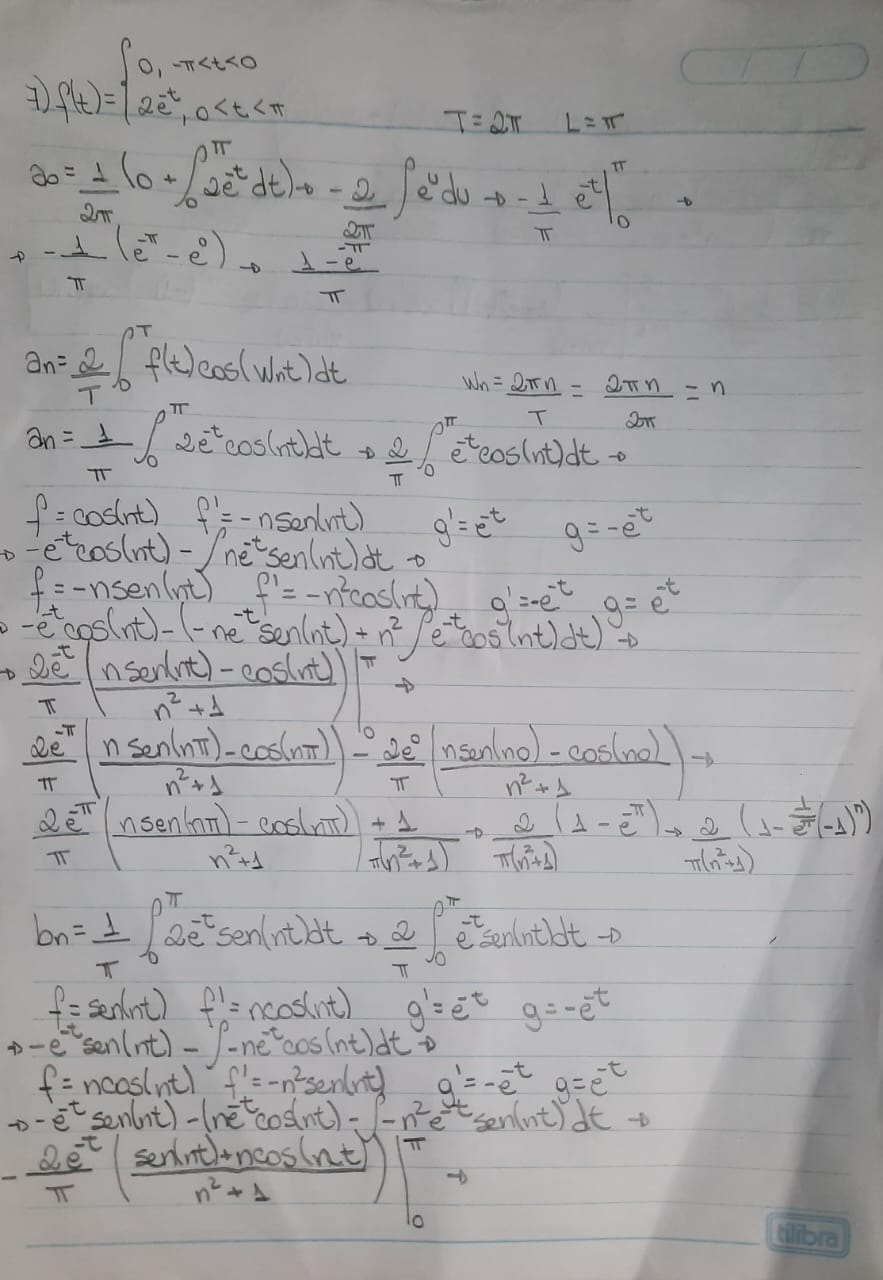 7) f(t) = { 0, -π<t<0
2e^-t, 0<t<π T = 2π L = π
a0 = 1/2π (0 + ∫_0^π 2e^-t dt) → -2/2π ∫e^u du → -1/π e^-t |_0^π →
→ -1/π (e^-π - e^0) → (1 - e^-π)/π
an = 2/T ∫_0^T f(t) cos(Wnt) dt Wn = 2πn/T = 2πn/2π = n
an = 1/π ∫_0^π 2e^-t cos(nt) dt → 2/π ∫_0^π e^-t cos(nt) dt →
f = cos(nt) f' = -n sen(nt) g' = e^-t g = -e^-t
→ -e^-t cos(nt) - ∫ne^-t sen(nt) dt →
f = -n sen(nt) f' = -n² cos(nt) g' = -e^-t g = e^-t
→ -e^-t cos(nt) - (-ne^-t sen(nt) + n² ∫e^-t cos(nt) dt) →
→ 2e^-t/π ((n sen(nt) - cos(nt))/(n² + 1)) |_0^π →
2e^-π/π ((n sen(nπ) - cos(nπ))/(n² + 1)) - 2e^0/π ((n sen(n0) - cos(n0))/(n² + 1)) →
2e^-π/π ((n sen(nπ) - cos(nπ))/(n² + 1)) + 1/(π(n² + 1)) → 2/(π(n² + 1)) (1 - e^-π) → 2/(π(n² + 1)) (1 - 1/e^π (-1)^n)
bn = 1/π ∫_0^π 2e^-t sen(nt) dt → 2/π ∫_0^π e^-t sen(nt) dt →
f = sen(nt) f' = n cos(nt) g' = e^-t g = -e^-t
→ -e^-t sen(nt) - ∫-ne^-t cos(nt) dt →
f = n cos(nt) f' = -n² sen(nt) g' = -e^-t g = e^-t
→ -e^-t sen(nt) - (ne^-t cos(nt) - ∫-n² e^-t sen(nt) dt →
- 2e^-t/π ((sen(nt) + n cos(nt))/(n² + 1)) |_0^π →
tilibra